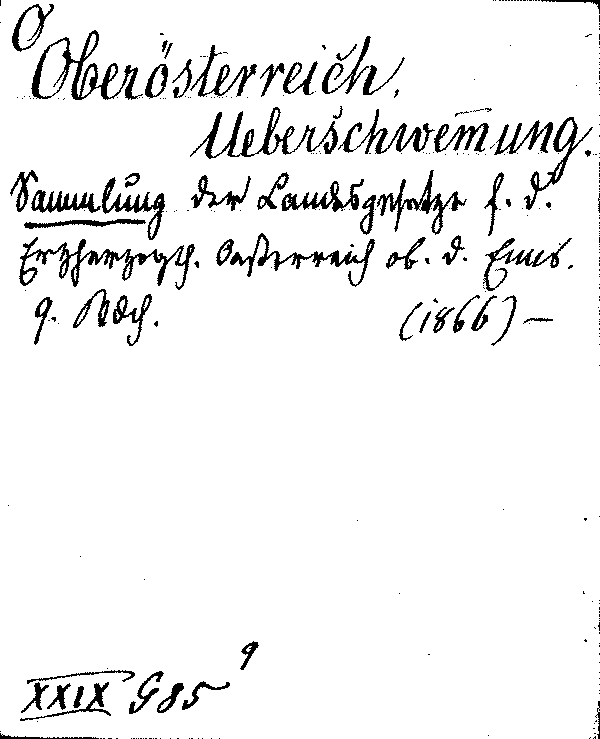 O
Oberösterreich,
Ueberschwem̄ung.
Sammlung der Landesgesetze f. d.
Erzherzogth. Oesterreich ob. d. Enns.
9. Bdch. (1866) —
XXIX G 85 9